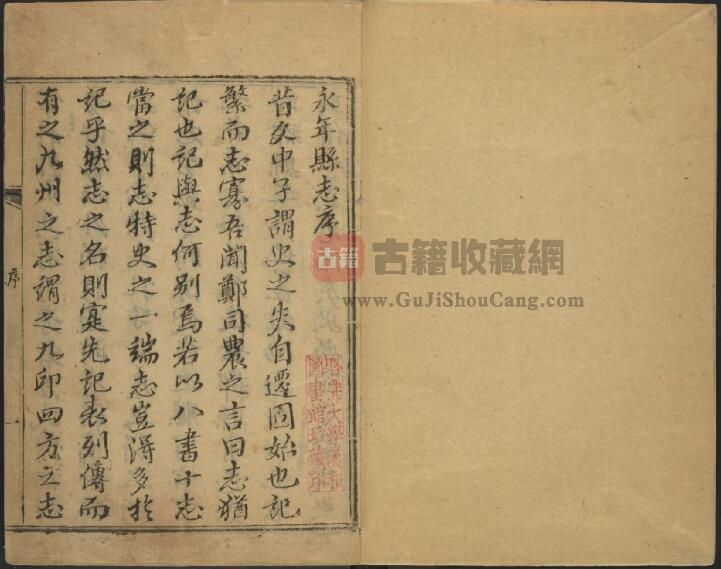 永年縣志序
昔文中子謂史之失自遷固始也記
繁而志寡吾聞鄭司農之言曰志猶
記也記與志何別焉若以八書十志
當之則志特史之一端志豈得多於
記乎然志之名則寔先記表列傳而
有之九州之志謂之九邱四方之志
序
一
哈佛大學漢和
圖書館珍藏印
古籍
古籍收藏網
www.GuJiShouCang.com